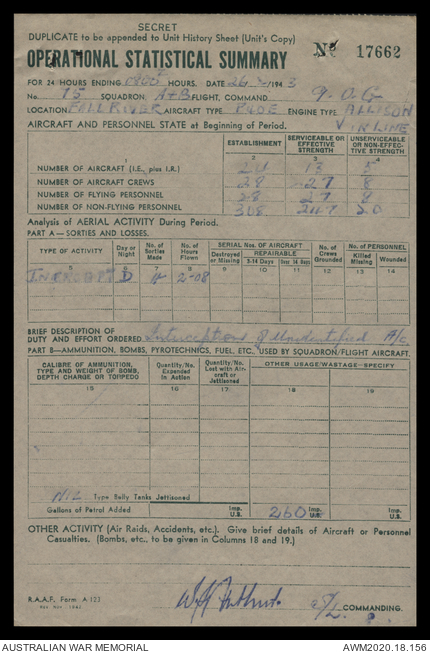 SECRET
DUPLICATE to be appended to Unit History Sheet (Unit's Copy)
OPERATIONAL STATISTICAL SUMMARY No 17662
FOR 24 HOURS ENDING HOURS. DATE 26 194 3
No. 75 SQUADRON A+B FLIGHT, COMMAND 9.O.G
LOCATION FALL RIVER AIRCRAFT TYPE P40E ENGINE TYPE ALLISON
V IN LINE
AIRCRAFT AND PERSONNEL STATE at Beginning of Period.
ESTABLISHMENT SERVICEABLE OR EFFECTIVE STRENGTH UNSERVICEABLE OR NON-EFFECTIVE STRENGTH
1 2 3 4
NUMBER OF AIRCRAFT (I.E., plus I.R.) 24 13 5
NUMBER OF AIRCRAFT CREWS 28 27 8
NUMBER OF FLYING PERSONNEL 28 27 8
NUMBER OF NON-FLYING PERSONNEL 308 247 20
Analysis of AERIAL ACTIVITY During Period.
PART A—SORTIES AND LOSSES.
TYPE OF ACTIVITY Day or Night No. of Sorties Made No. of Hours Flown SERIAL Nos. OF AIRCRAFT No. of Crews Grounded No. of PERSONNEL
Destroyed or Missing REPAIRABLE Killed Missing Wounded
3-14 Days Over 14 days
5 6 7 8 9 10 11 12 13 14
INTERCEPT D 4 2-08
BRIEF DESCRIPTION OF
DUTY AND EFFORT ORDERED Interception of Unidentified A/c
PART B—AMMUNITION, BOMBS, PYROTECHNICS, FUEL, ETC., USED BY SQUADRON/FLIGHT AIRCRAFT.
CALIBRE OF AMMUNITION, TYPE AND WEIGHT OF BOMB, DEPTH CHARGE OR TORPEDO Quantity/No. Expended in Action Quantity/No. Lost with Aircraft or Jettisoned OTHER USAGE/WASTAGE—SPECIFY
15 16 17 18 19
NIL Type Belly Tanks Jettisoned
Gallons of Petrol Added Imp. U.S. 260 Imp. U.S. Imp. U.S.
OTHER ACTIVITY (Air Raids, Accidents, etc.). Give brief details of Aircraft or Personnel
Casualties. (Bombs, etc., to be given in Columns 18 and 19.)
R.A.A.F. Form A.123
COMMANDING.
AUSTRALIAN WAR MEMORIAL AWM2020.18.156